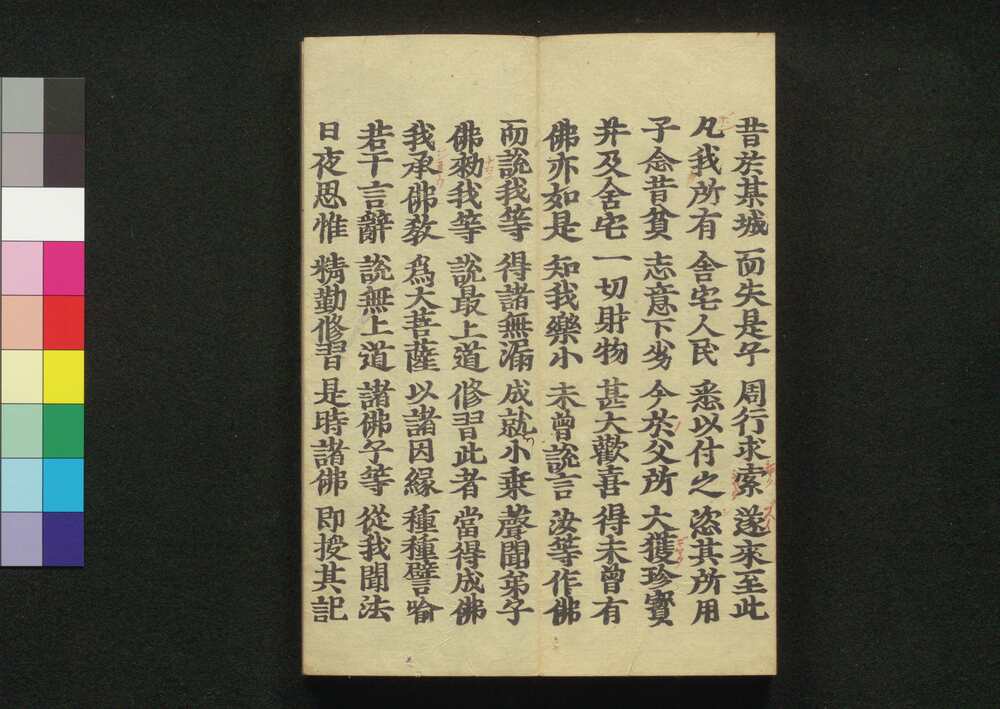 昔於某城 而失是子 周行求索 遂來至此
凡我所有 舍宅人民 悉以付之 恣其所用
子念昔貧 志意下劣 今於父所 大獲珍寶
并及舍宅 一切財物 甚大歡喜 得未曾有
佛亦如是 知我樂小 未曾說言 汝等作佛
而說我等 得諸無漏 成就小乗 聲聞弟子
佛勑我等 說最上道 修習此者 當得成佛
我承佛教 爲大菩薩 以諸因縁 種種譬喻
若干言辭 說無上道 諸佛子等 從我聞法
日夜思惟 精勤修習 是時諸佛 即授其記